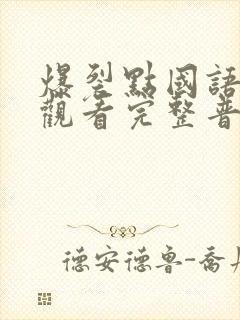 爆裂點國語
觀看完整普
德安德鲁-喬